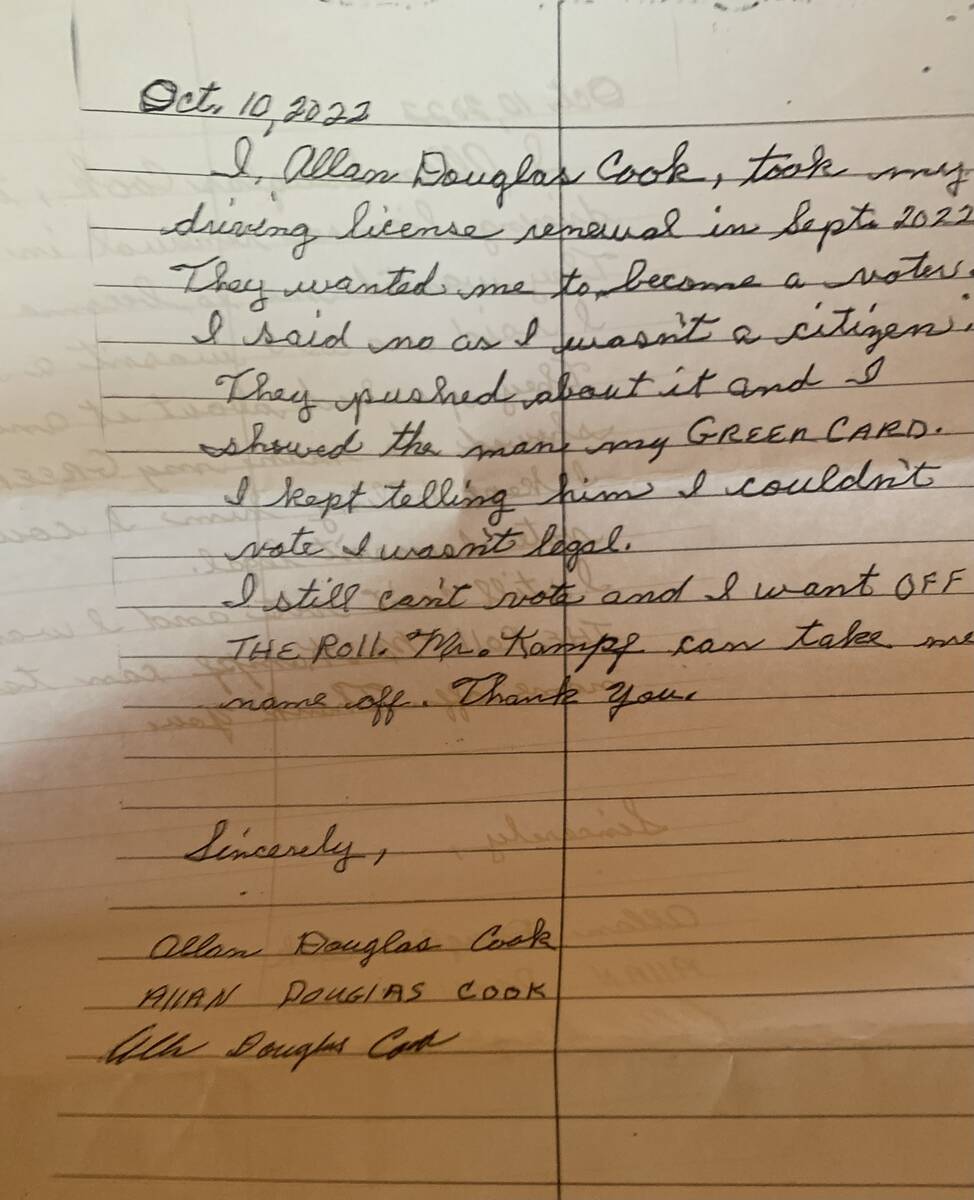 Oct. 10, 2022
I, Allan Douglas Cook, took my
driving license renewal in Sept. 2022
They wanted me to become a voter.
I said no as I wasn't a citizen.
They pushed about it and I
showed the man my GREEN CARD.
I kept telling him I couldn't
vote I wasn't legal.
I still can't vote and I want OFF
THE ROLL. Mr. Kampf can take me
name off. Thank you.
Sincerely,
Allan Douglas Cook
ALLAN DOUGLAS COOK
Allan Douglas Cook